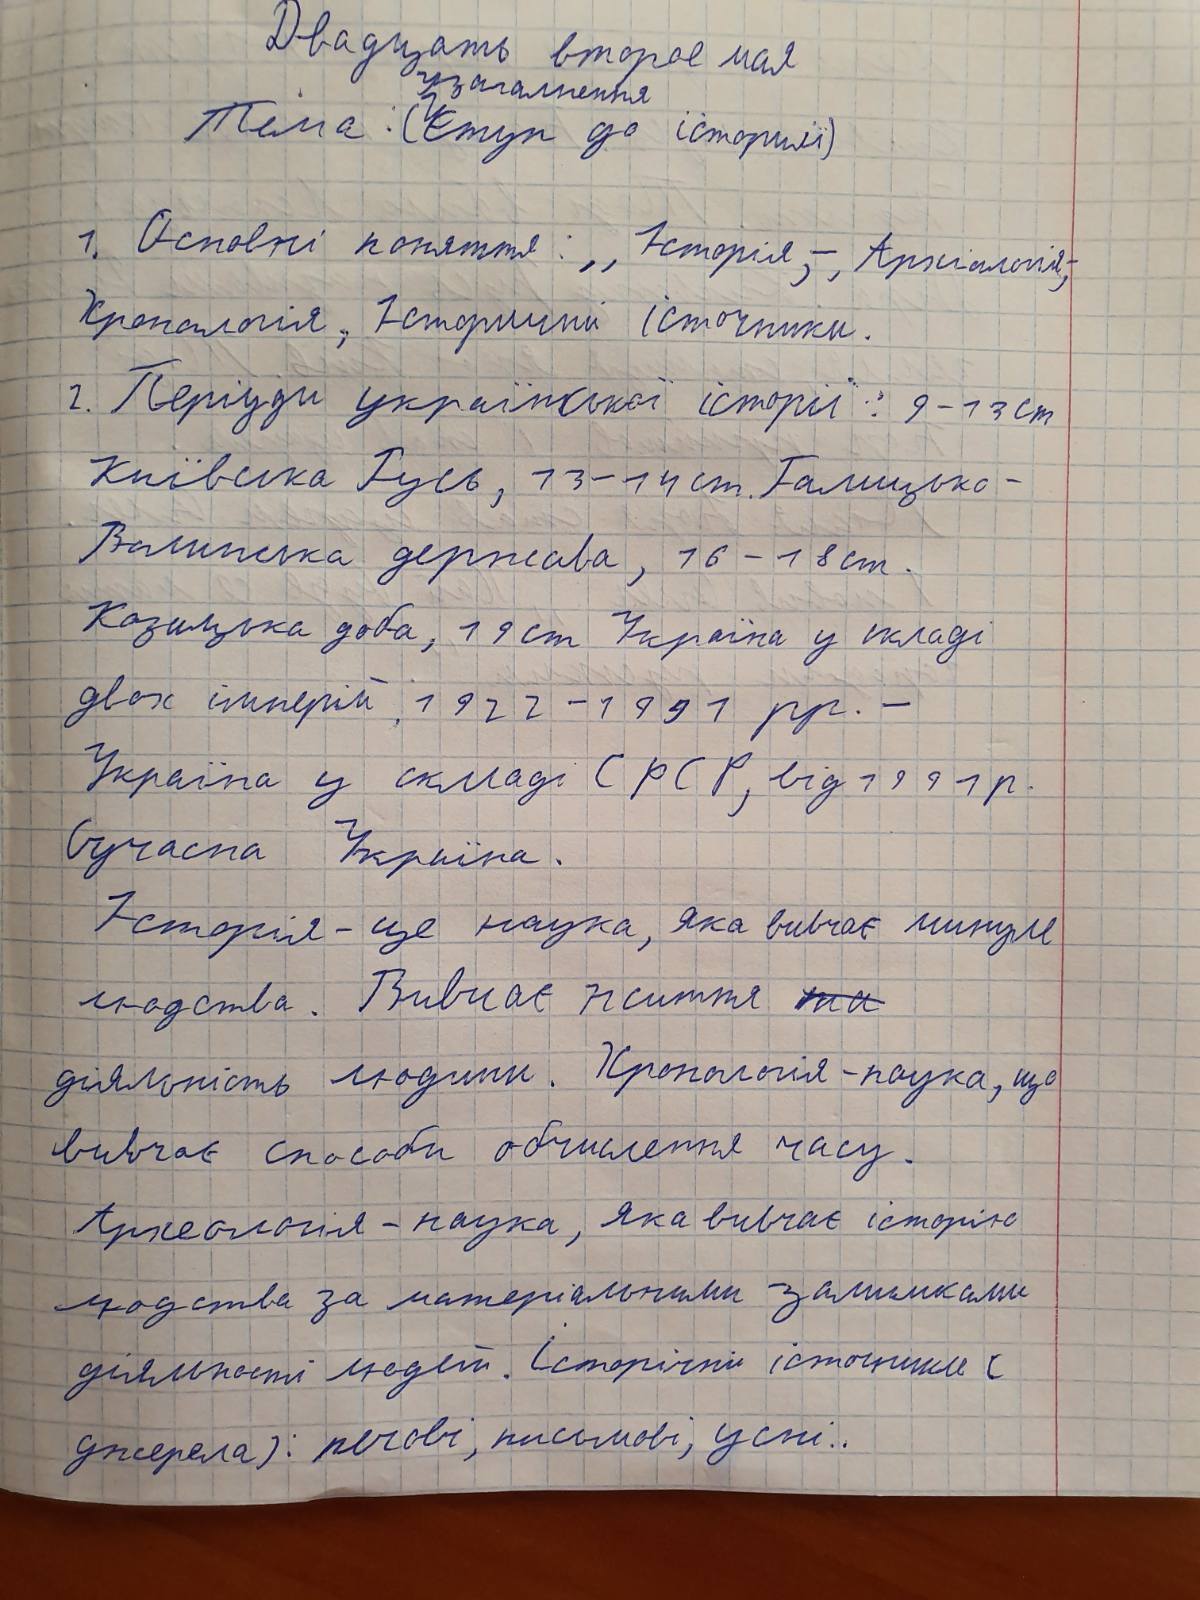 Двадцать второе мая
узагалнення
Тема : (Вступ до історіїї)
1. Основні поняття : ,, Історія,-, Архіалогія;-
Хроналогія, Історичні істочники.
2. Періуди української історії : 9-13ст
Київська Русь, 13-14 ст. Галицько-
Валинська держава, 16-18ст.
Козацька доба, 19ст Україна у складі
двох імперій, 1922-1991 рр. -
Україна у складі СРСР, від 1991р.
Сучасна Україна.
Історія - це наука, яка вивчає минуле
людства. Вивчає життя та
діяльність людини. Хронологія - наука, що
вивчає способи обчислення часу.
Археологія - наука, яка вивчає історію
людства за матеріальними залишками
діяльності людей. Історічни істочники (
джерела): речові, письмові, усні..